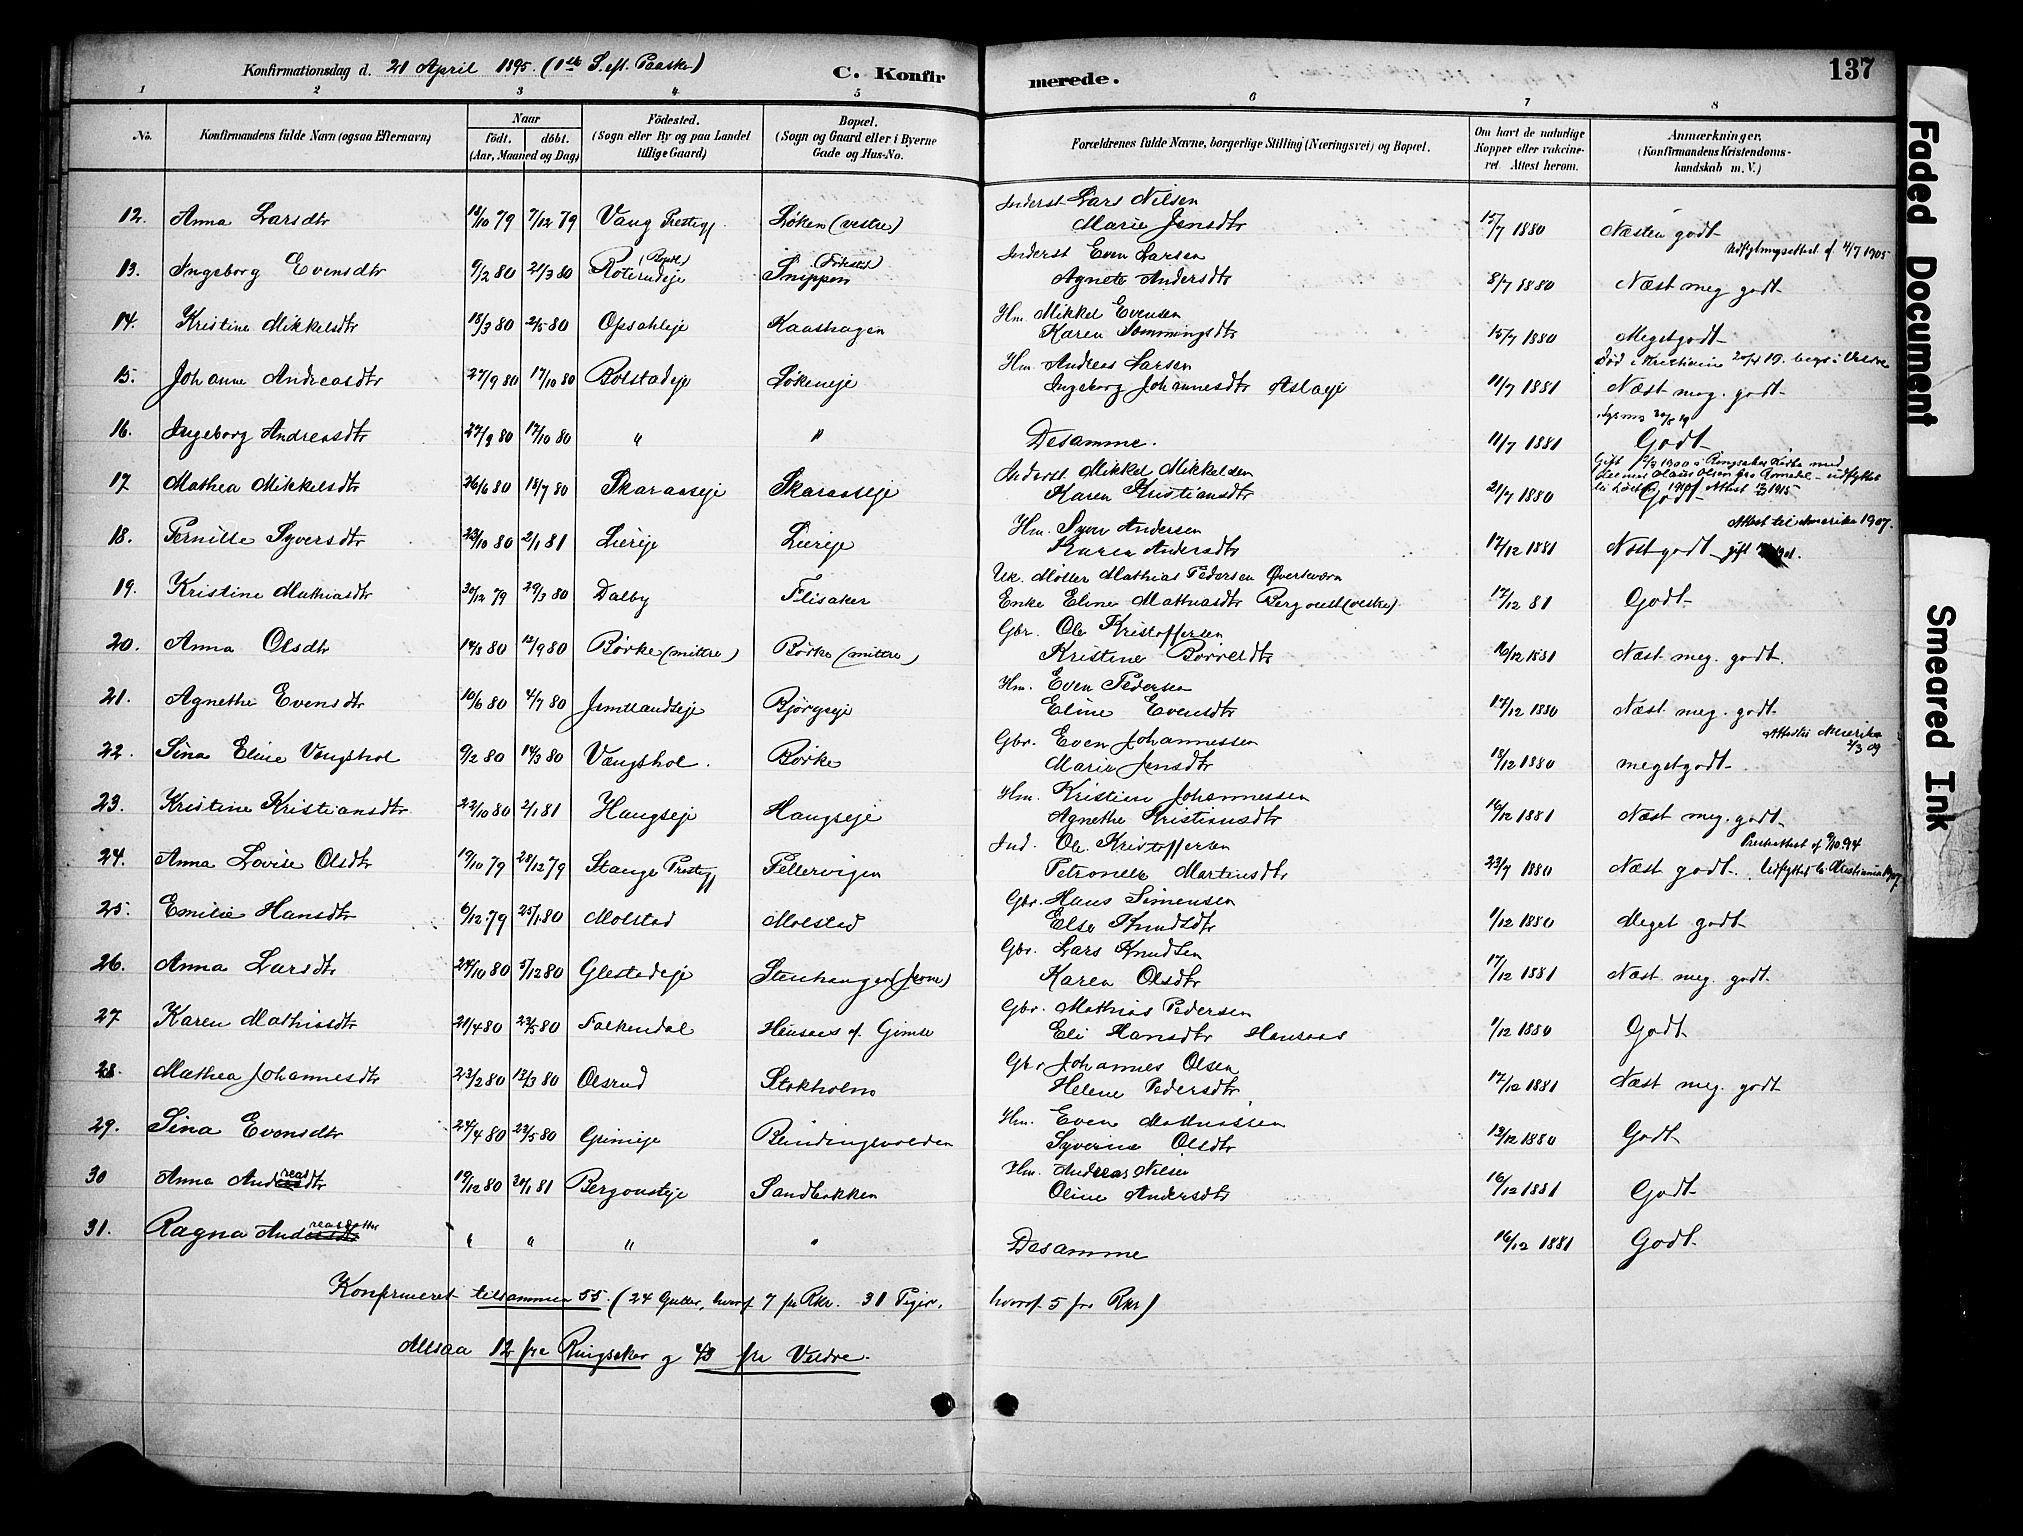 Konfirmationsdag d. 21 April 1895. (1ste S. eft. Paaske)
C. Konfirmerede.
137
1 2 3 4 5 6 7 8
No. Konfirmandens fulde Navn (ogsaa Efternavn) Naar födt. döbt. (Aar, Maaned og Dag) Födested. (Sogn eller By og paa Landet tillige Gaard) Bopæl. (Sogn og Gaard eller i Byerne Gade og Hus-No. Forældrenes fulde Navne, borgerlige Stilling (Næringsvei) og Bopæl. Om havt de naturlige Kopper eller vakcineret. Attest herom. Anmærkninger. (Konfirmandens Kristendomskundskab m. V.)
12. Anna Larsdtr 12/10 79 7/12 79 Vang Prestegj. Løken (vestre) Inderst Lars Nilsen Marie Jensdtr 15/7 1880 Næsten godt
13. Ingeborg Evensdtr 9/2 80 21/3 80 Roterudeje Snippen Inderst Even Larsen Agnete Andersdtr 8/7 1880 Næst meg godt
14. Kristine Mikkelsdtr 18/3 80 2/5 80 Opsahleje Kaashagen Hm. Mikkel Evensen Karen Sommingsdtr 15/7 1880 Meget godt
15. Johanne Andreasdtr 27/9 80 17/10 80 Bolstadeje Løkeneje Hm. Andreas Larsen Ingeborg Johannesdtr Aslageje 11/7 1881 Næst meg. godt
16. Ingeborg Andreasdtr 27/9 80 17/10 80 " " Desamme. 11/7 1881 Godt
17. Mathea Mikkelsdtr 26/6 80 18/7 80 Skaraaseje Skaraaseje Inderst Mikkel Mikkelsen Karen Kristiansdtr 21/7 1880 Godt
18. Pernille Syversdtr 23/10 80 2/1 81 Liereje Liereje Hm. Syver Andersen Karen Andersdtr 17/12 1881 Næst godt Attest til Amerika 1907.
19. Kristine Mathiasdtr 30/12 79 29/3 80 Dalby Flisaker Uk. Møller Mathias Pedersen Øverkværn Enke Eline Mathiasdtr Bergoust (vestre) 17/12 81 Godt
20. Anna Olsdtr 14/8 80 12/9 80 Børke (mittre) Børke (mittre) Gbr. Ole Kristoffersen Kristine Børresdtr 16/12 1881 Næst meg. godt.
21. Agnethe Evensdtr 10/6 80 4/7 80 Jemtlandseje Bjørgseje Hm. Even Pedersen Eline Evensdtr 17/12 1880 Næst meg. godt
22. Sina Eline Vangshol 9/2 80 14/3 80 Vangshol. Børke Gbr. Even Johannessen Marie Jensdtr 18/12 1880 meget godt Attest til Amerika 2/3 09
23. Kristine Kristiansdtr 22/10 80 2/1 81 Haugseje Haugseje Hm. Kristian Johannessen Agnethe Kristiansdtr 16/12 1881 Næst meg. godt
24. Anna Lovise Olsdtr 19/10 79 28/12 79 Stange Prestegj Tellervigen Ind. Ole Kristoffersen Petronelle Martinsdtr 22/7 1880 Næst godt. Udflyttet til Kristiania 1907
25. Emilie Hansdtr 6/12 79 25/1 80 Molstad Molstad Gbr. Hans Simensen Else Knudsdtr 1/12 1880 Meget godt
26. Anna Larsdtr 24/10 80 5/12 80 Glestadeje Stenhanger Gbr. Lars Knudsen Karen Olsdtr 17/12 1881 Næst meg. godt
27 Karen Mathiasdtr 21/4 80 23/5 80 Falkendal Hensaas af Gimle Gbr. Mathias Pedersen Eli Hansdtr Hensaas 1/12 1880 Godt
28. Mathea Johannesdtr 23/2 80 13/3 80 Olsrud Stokholm Gbr. Johannes Olsen Helene Pedersdtr 17/12 1881 Næst meg. godt
29. Sina Evensdtr 24/4 80 23/5 80 Grimeje Rundingsvolden Hm. Even Mathiassen Syverine Olsdtr 13/12 1880 Godt
30 Anna Andreasdtr 19/12 80 20/1 81 Bergousteje Sandbakken Hm. Andreas Nilsen Oline Andersdtr 16/12 1881 Godt
31. Ragna Andreasdatter " " " " Desamme 16/12 1881 Godt
Konfirmeret tilsammen 55. (24 Gutter, hvoraf 7 fra Rkr. 31 Piger, hvoraf 5 fra Rkr)
Altsaa 12 fra Ringsaker og 43 fra Veldre.
Faded Document
Smeared Ink